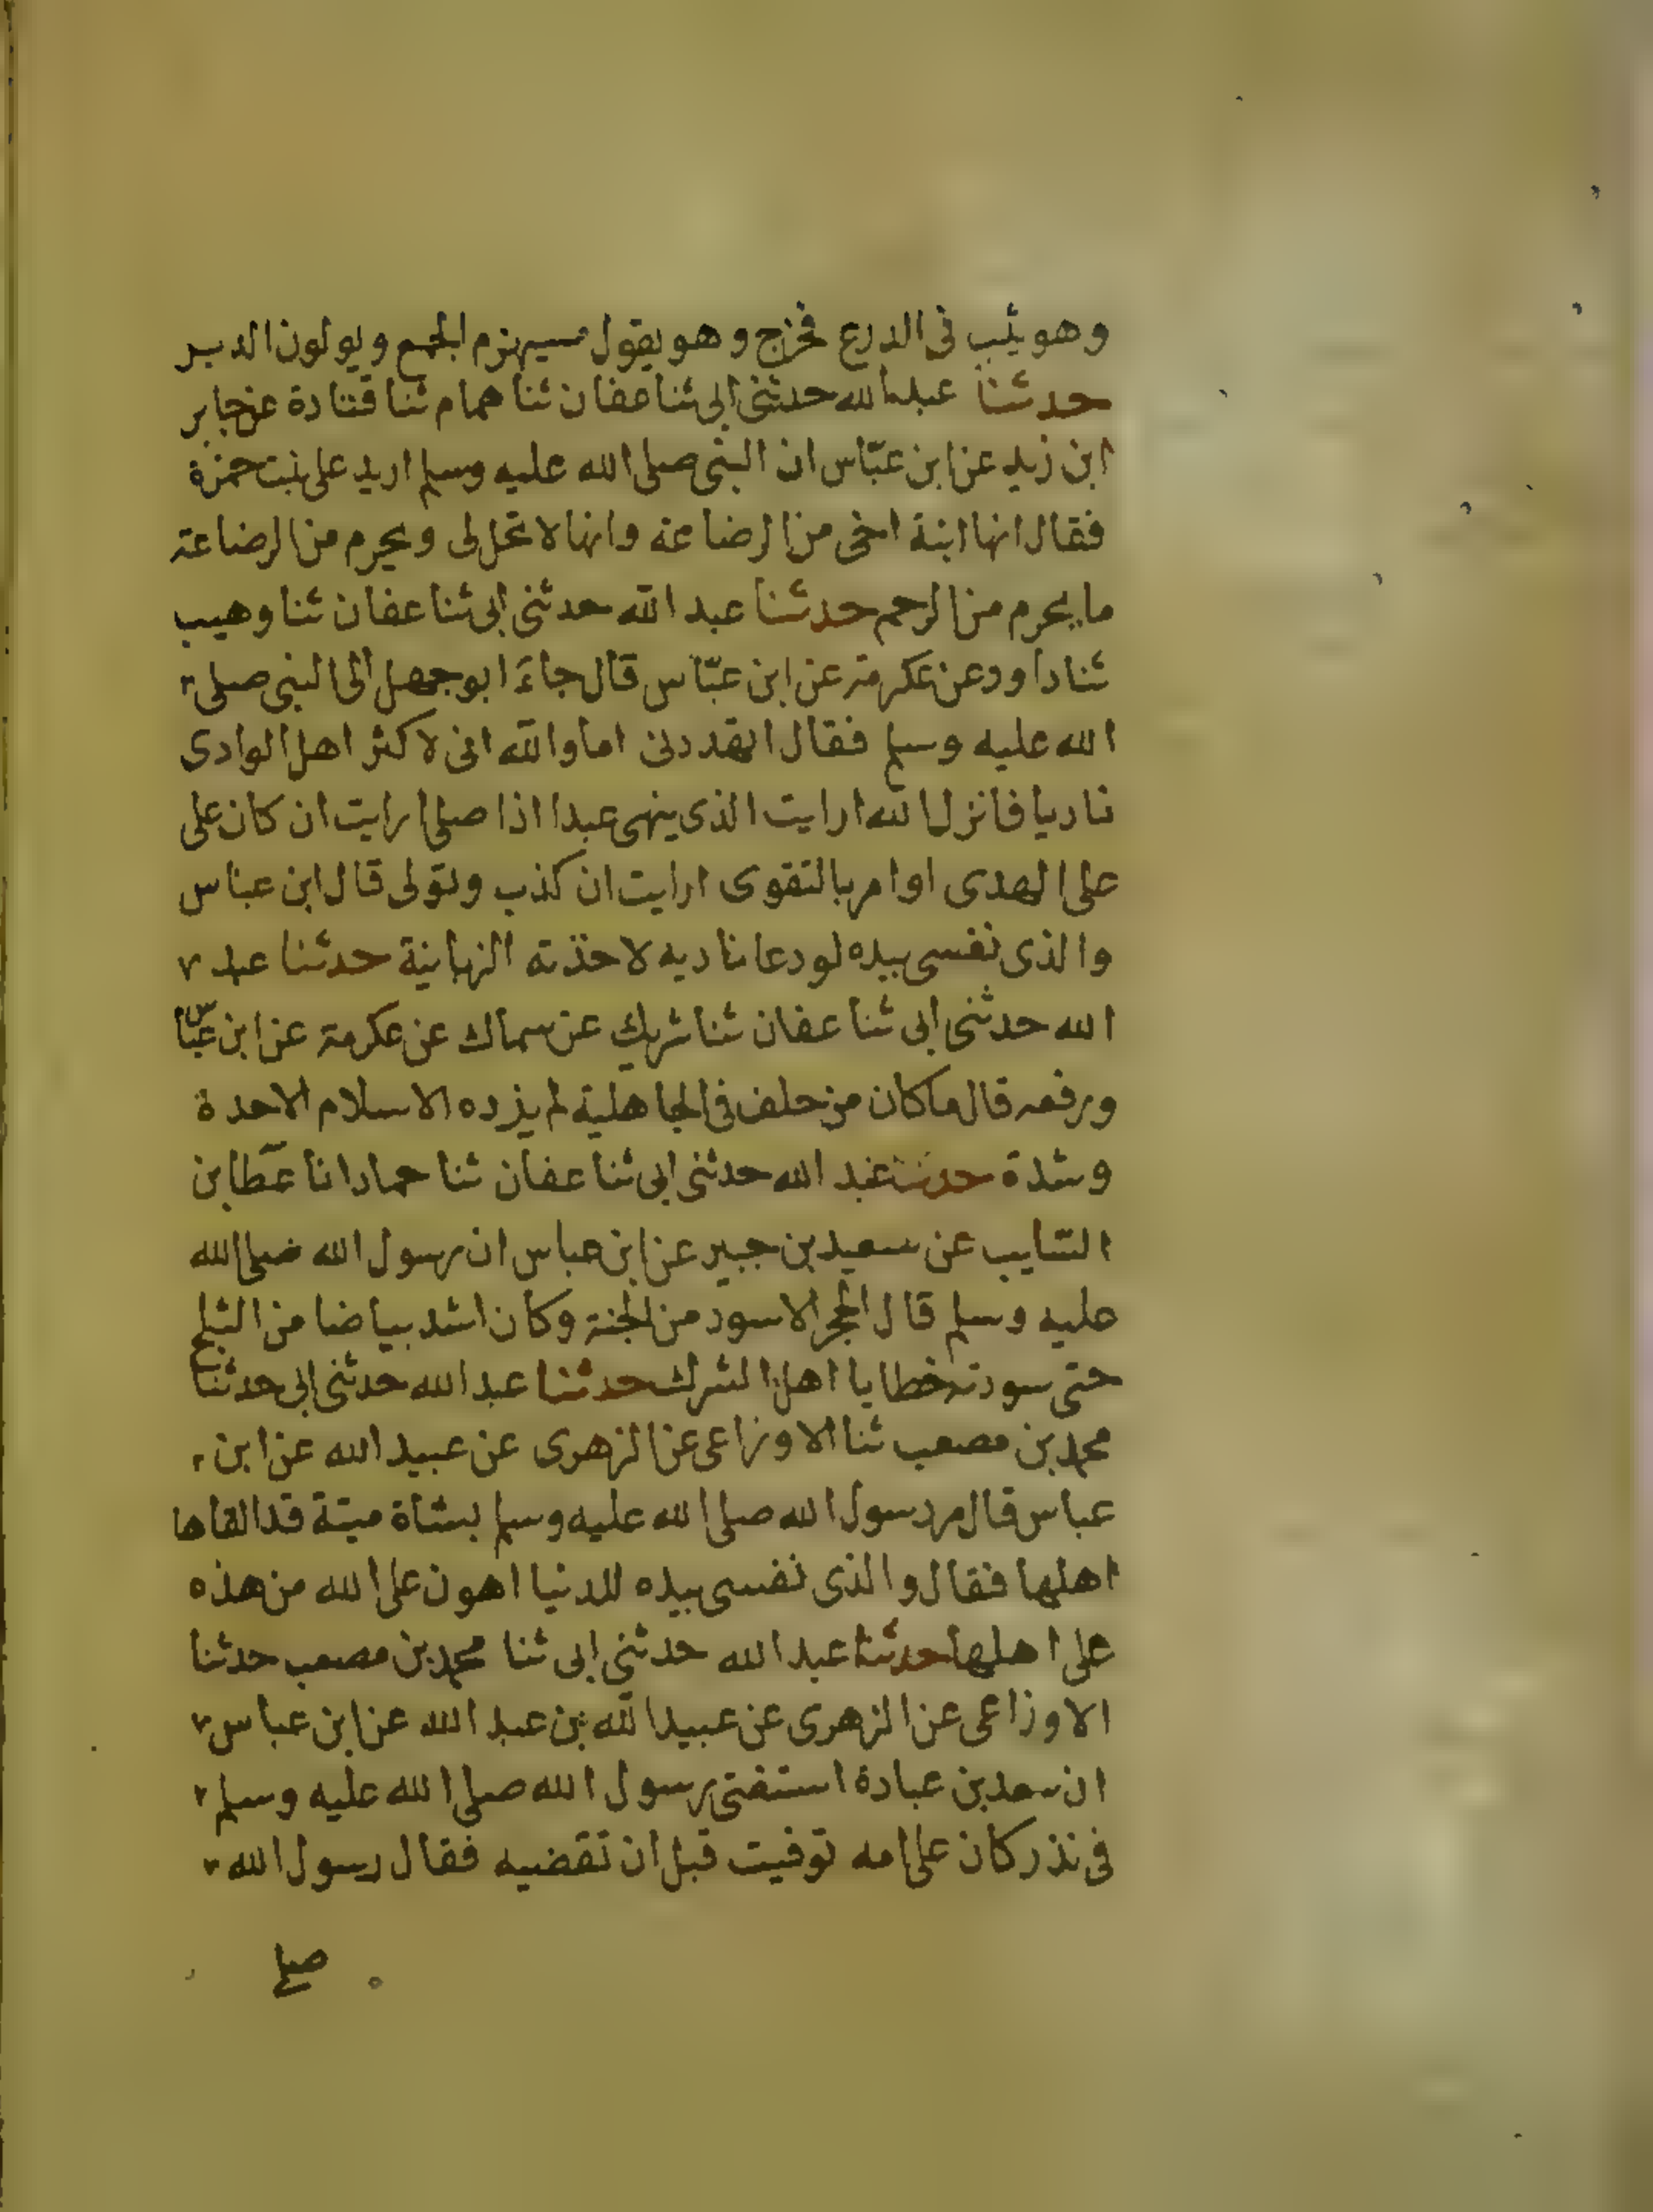 وهو يثب في الدرع فخرج وهو يقول سيهزم الجمع ويولون الدبر
حدثنا عبد الله حدثني ابي ثنا عفان ثنا همام ثنا قتادة عن جابر
ابن زيد عن ابن عبّاس ان النبي صلى الله عليه وسلم اريد على بنت حمزة
فقال انها ابنة اخي من الرضاعة وانها لا تحل لي ويحرم من الرضاعة
ما يحرم من الرحم حدثنا عبد الله حدثني ابي ثنا عفان ثنا وهيب
ثنا داوود عن عكرمة عن ابن عبّاس قال جاء ابو جهل الى النبي صلى
الله عليه وسلم فقال اتهددني اما والله اني لاكثر اهل الوادي
ناديا فانزل الله ارايت الذي ينهى عبدا اذا صلى ارايت ان كان على
على الهدى او امر بالتقوى ارايت ان كذب وتولى قال ابن عباس
والذي نفسي بيده لو دعا ناديه لاخذته الزبانية حدثنا عبد
الله حدثني ابي ثنا عفان ثنا شريك عن سماك عن عكرمة عن ابن عبّاس
ورفعه قال ما كان من حلف في الجاهلية لم يزده الاسلام الا حدة
وشدة حدثنا عبد الله حدثني ابي ثنا عفان ثنا حماد انا عطا بن
السّايب عن سعيد بن جبير عن ابن عباس ان رسول الله صلى الله
عليه وسلم قال الحجر الاسود من الجنة وكان اشد بياضا من الثلج
حتى سودته خطايا اهل الشرك حدثنا عبد الله حدثني ابي حدثنا
محمد بن مصعب ثنا الاوزاعي عن الزهري عن عبيد الله عن ابن
عباس قال مر رسول الله صلى الله عليه وسلم بشاة ميتة قد القاها
اهلها فقال والذي نفسي بيده للدنيا اهون على الله من هذه
على اهلها حدثنا عبد الله حدثني ابي ثنا محمد بن مصعب حدثنا
الاوزاعي عن الزهري عن عبيد الله بن عبد الله عن ابن عباس
ان سعد بن عبادة استفتى رسول الله صلى الله عليه وسلم
في نذر كان على امه توفيت قبل ان تقضيه فقال رسول الله
صلى